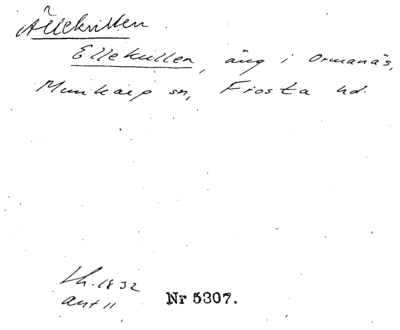 Ällekullen
Ellekullen, äng i Ormanäs,
Munkarp sn, Frosta hd.
Lh. 1832
akt 11
Nr 5307.